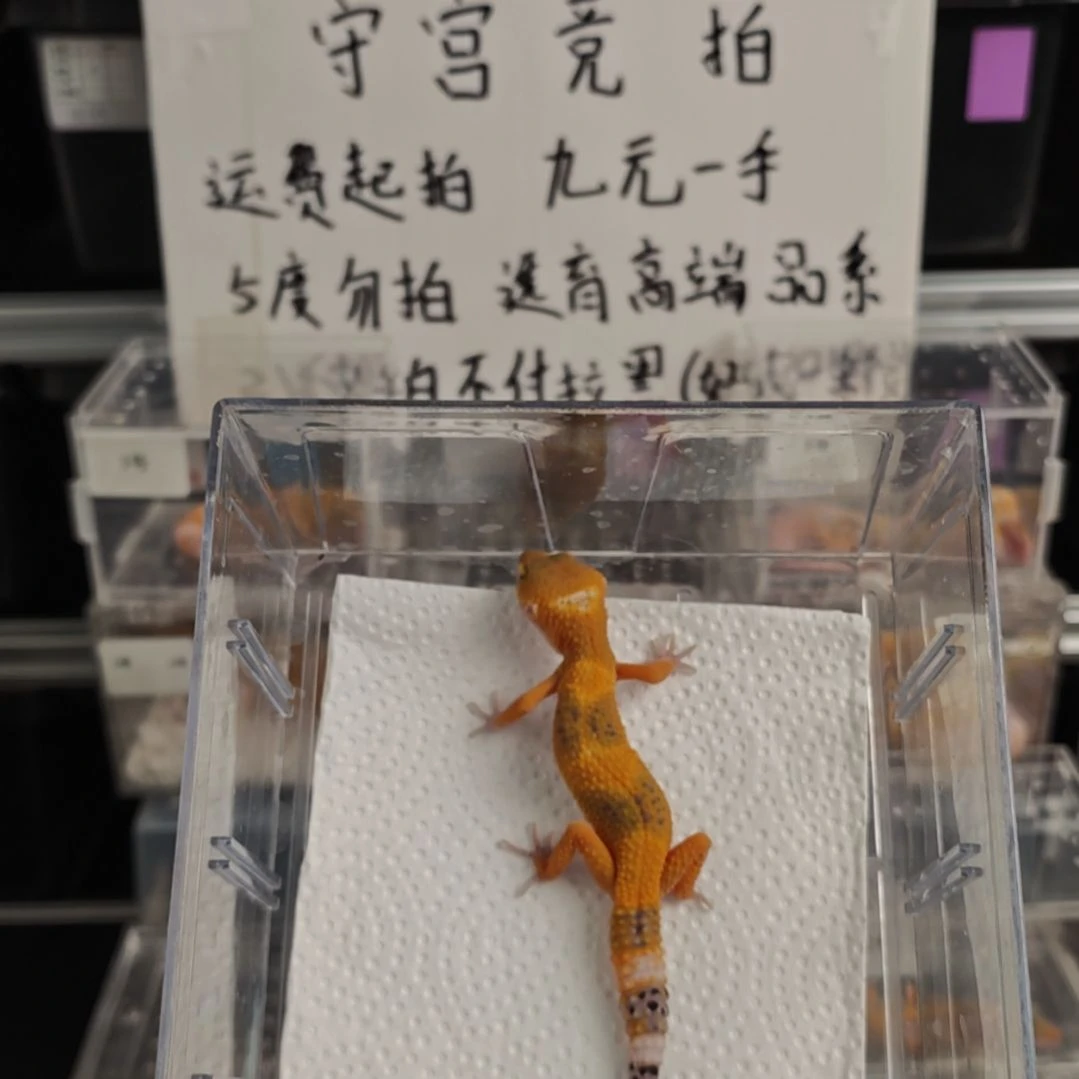 守宫竞拍
运费起拍 九元一手
5度勿拍 送育高端品系
白不付拉黑